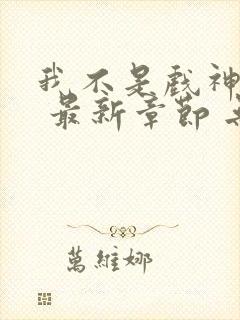 我不是戏神
最新章節
萬維娜